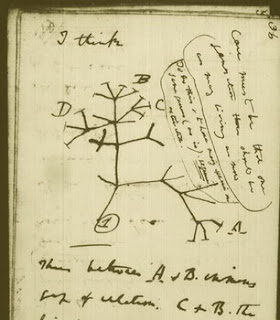 36
I think
Case must be that one
generation then should be
as many living as now
To do this & to have many species in
same genus (as is) requires
extinction
B
C
D
A
1
Thus between A & B. immens
gap of relation. C & B. the